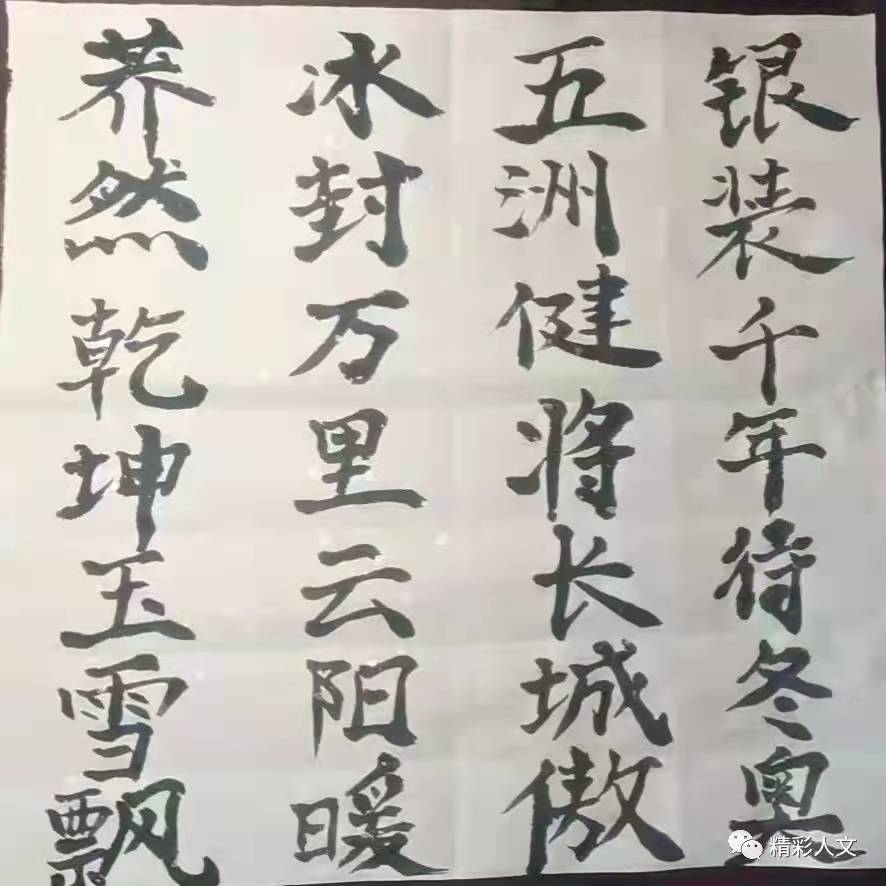 银装千年待冬奥
五洲健将长城傲
冰封万里云阳暖
莽然乾坤玉雪飘
精彩人文